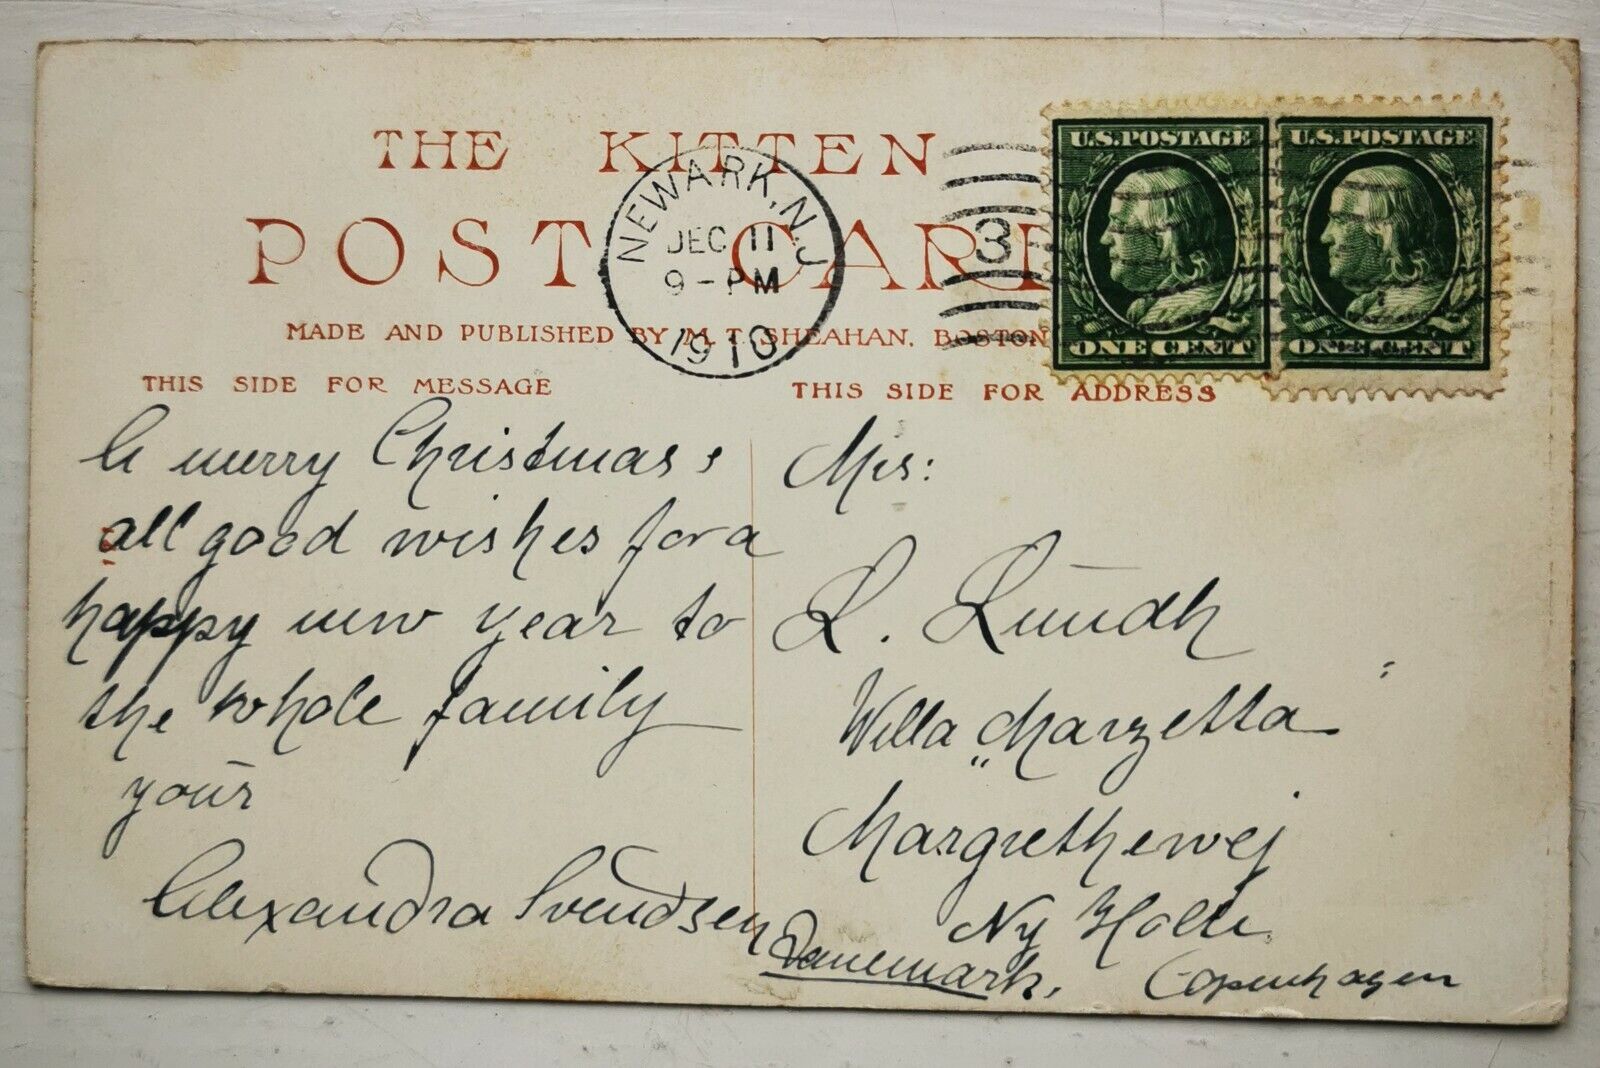 THE KITTEN
POST CARD
MADE AND PUBLISHED BY M. T. SHEAHAN, BOSTON
NEWARK, N.J.
DEC 11
9-PM
1910
3
U.S. POSTAGE
ONE CENT
U.S. POSTAGE
ONE CENT
THIS SIDE FOR MESSAGE
THIS SIDE FOR ADDRESS
A merry Christmas &
all good wishes for a
happy new year to
the whole family
your
Alexandra Svendsen
Mrs:
L. Lundh
Willa „Marzetta"
Margrethewej
Ny Holte
Danemark, Copenhagen